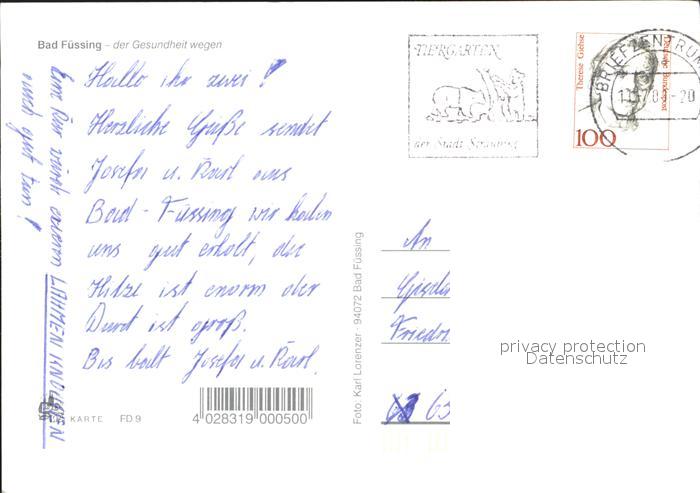 Bad Füssing – der Gesundheit wegen
Hallo ihr zwei!
Herzliche Grüße sendet
Josefa u. Karl aus
Bad-Füssing wir haben
uns gut erholt, die
Hitze ist enorm der
Durst ist groß.
Bis bald Josefa u. Karl.
Eine Kur würde eurem LAHMEN
auch gut tun!
KARTE FD 9
4 028319 000500
Foto: Karl Lorenzer · 94072 Bad Füssing
TIERGARTEN
der Stadt Straubing
Therese Giehse
Deutsche Bundespost
100
BRIEFZENTRUM
-20
An
Gisela
Friedr.
63
privacy protection
Datenschutz